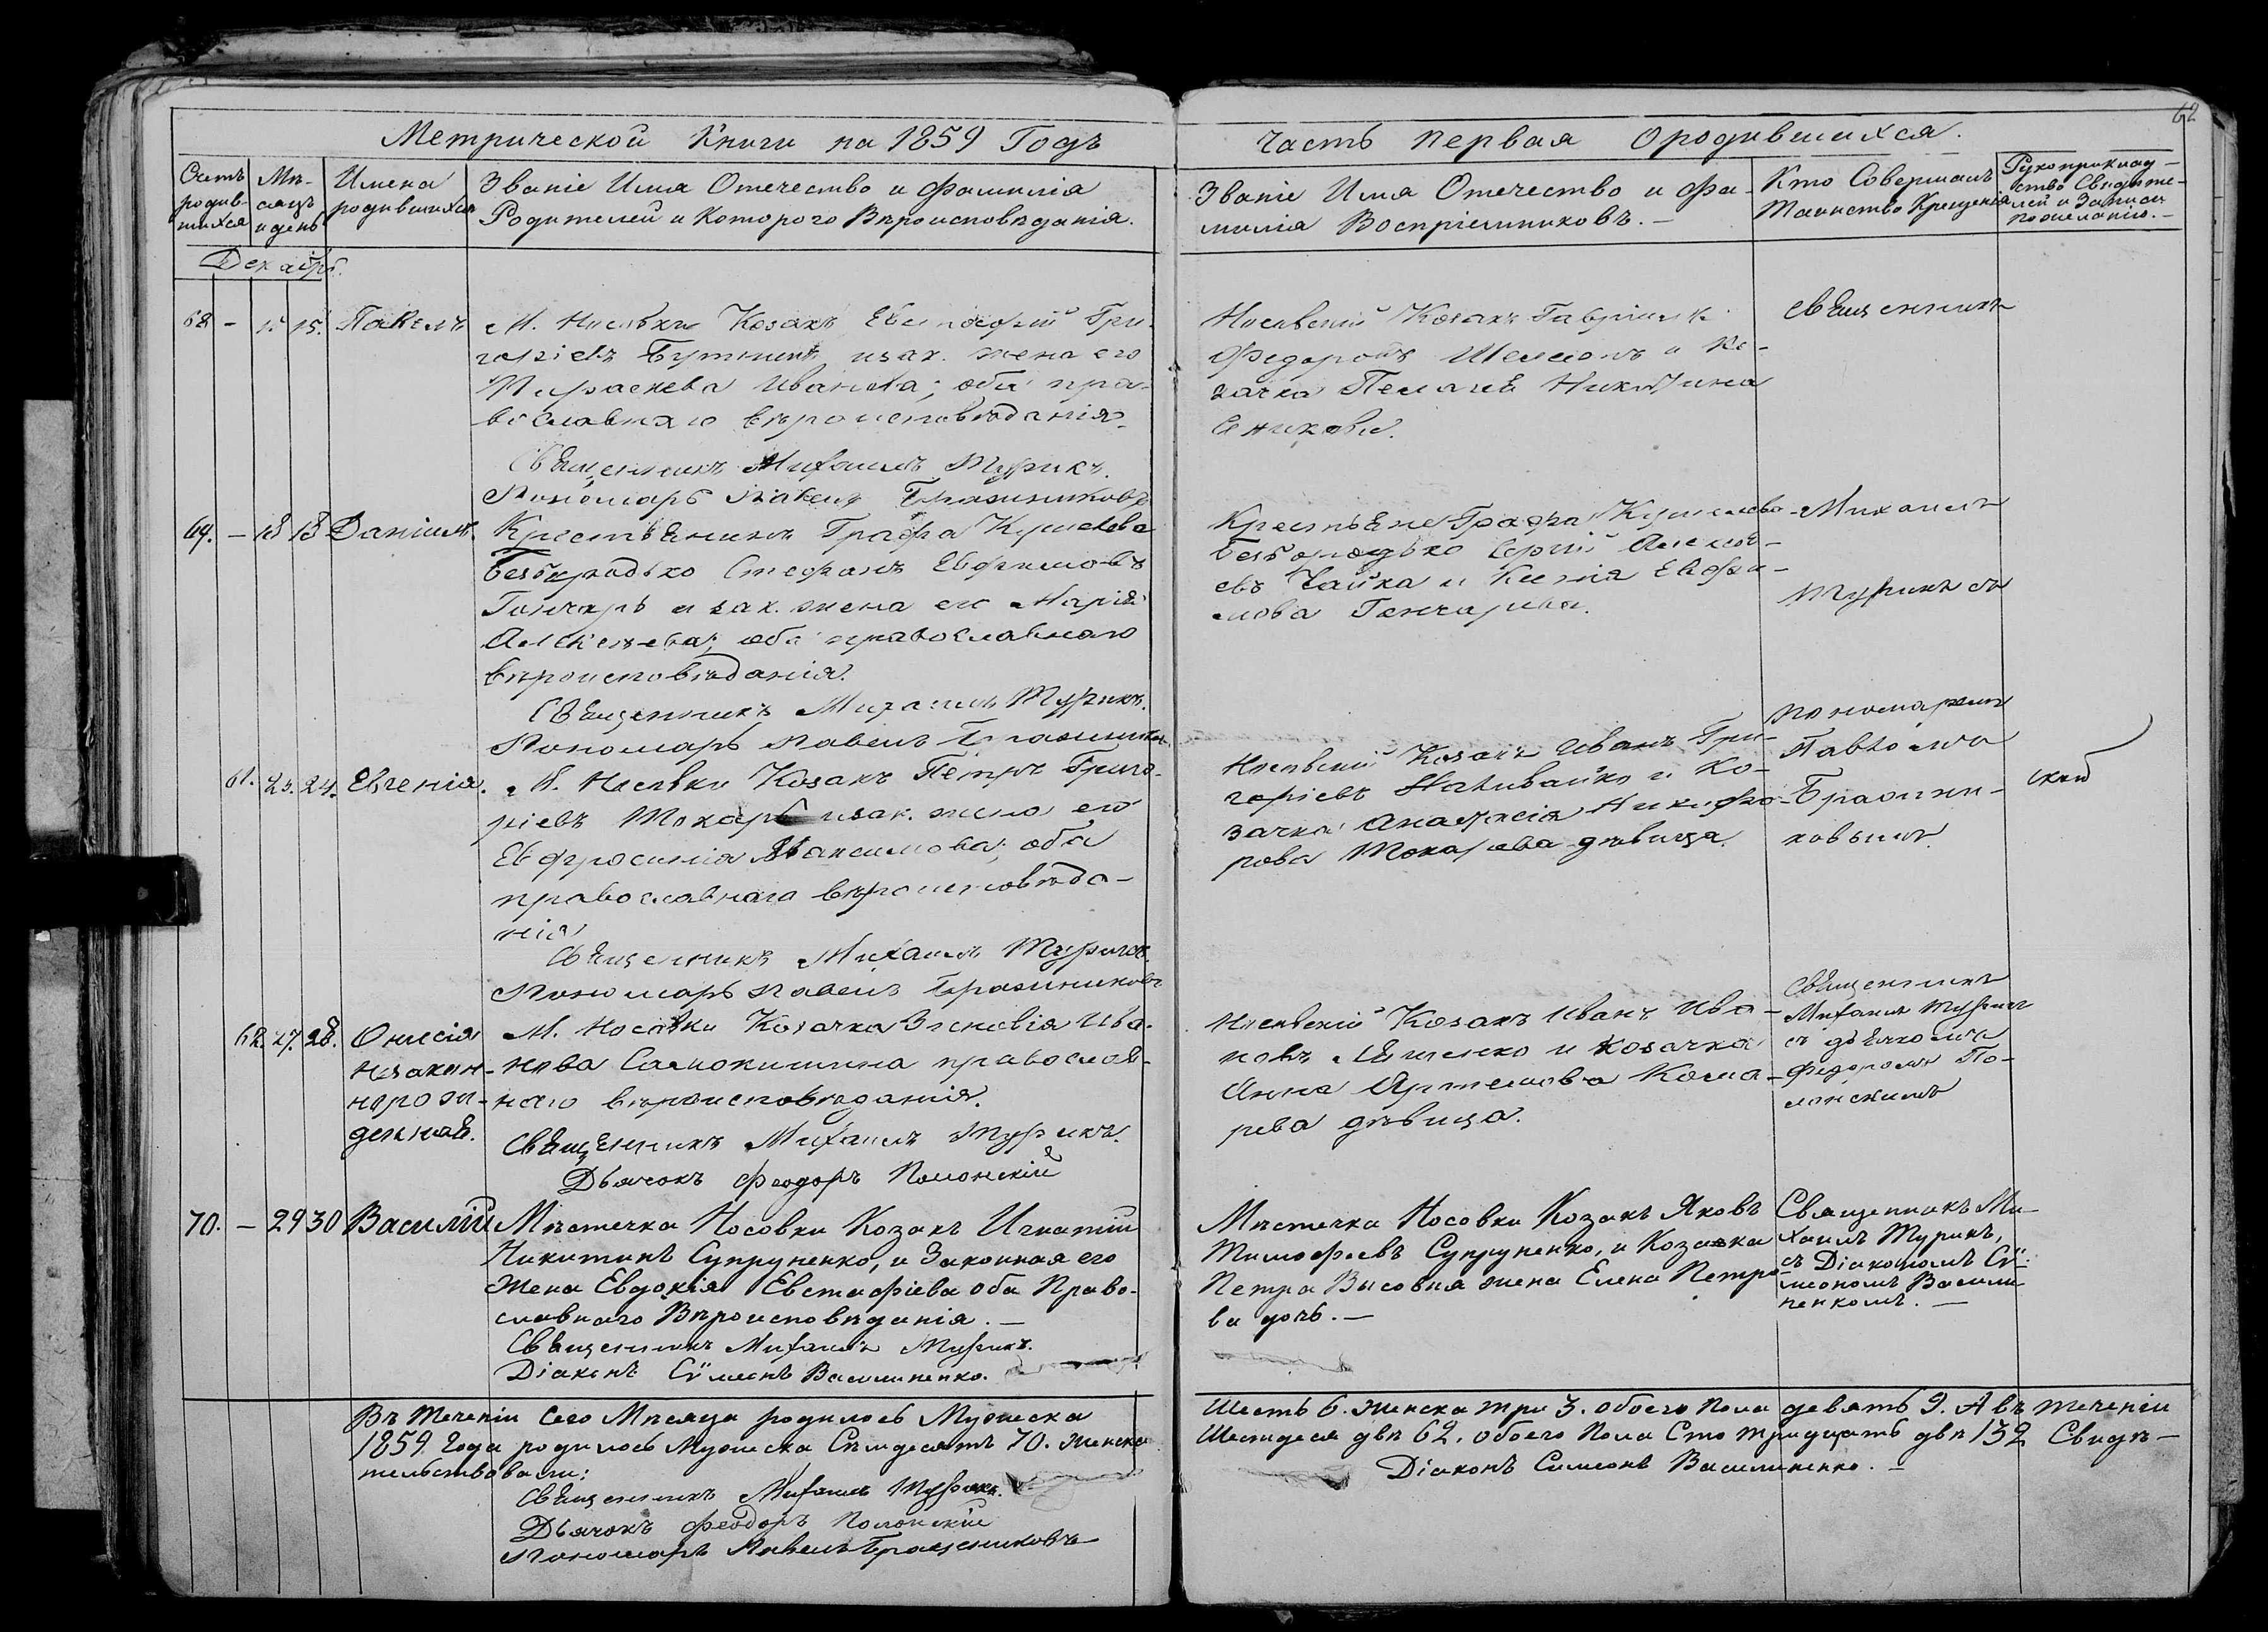 62
Метрической Книги на 1859 Годъ
Часть Первая Ородившихся.
Счетъ родив-шихся
Мѣ-сяцъ и день
Имена родившихся
Званіе Имя Отечество и Фамилія
Родителей и Которого Вѣроисповѣданія.
Званіе Имя Отечество и Фа-
милія Воспріемниковъ. —
Кто Совершалъ
Таинство Крещенія
Рукоприклад-
ство Свидѣте-
лей о Записи
по желанію. —
Декабрь.
68 — 15 15. Павелъ
М. Носовки Козакъ Гри-
горіевъ изак. жена его
Иванова; оба пра-
вославнаго вѣроисповѣданія.
Священникъ Михаилъ Турикъ.
Пономарь Павелъ Бражниковъ
Носовскій Козакъ Гавріилъ
Федоровъ и Ко-
зачка Никитина
Священникъ
69. — 18 18 Даніилъ.
Крестьянинъ Графа Кушелева
Безбородько Стефанъ Евфимовъ
Гончаръ и зак. жена его Марія
Алексѣева; оба православнаго
вѣроисповѣданія.
Священникъ Михаилъ Турикъ.
Пономарь Павелъ Бражниковъ
Крестьяне Графа Кушелева
Безбородько Сергій Алексѣ-
евъ Чайка и Ксенія Евфи-
мова Гончарова.
Михаилъ
Турикъ съ
61. 23. 24. Евгенія.
М. Носовки Козакъ Петръ Григо-
ріевъ Токарь изак. жена его
Евфросинія Максимова; оба
православнаго вѣроисповѣда-
нія
Священникъ Михаилъ Турикъ.
Пономарь Павелъ Бражниковъ
Носовскій Козакъ Иванъ Гри-
горіевъ Наливайко и Ко-
зачка Анастасія Никифо-
рова Токарева дѣвица.
пономаремъ
Павломъ
Бражни-
ковымъ.
62. 27. 28. Онисія
незакон-
норож-
денная.
М. Носовки Козачка Зиновія Ива-
нова Самокишина православ-
наго вѣроисповѣданія.
Священникъ Михаилъ Турикъ.
Дьячокъ Феодоръ Полонскій
Носовскій Козакъ Иванъ Ива-
новъ и козачка
Анна Артемова Кома-
рева дѣвица.
Священникъ
Михаилъ Турикъ
съ дьячкомъ
Федоромъ По-
лонскимъ
70. — 29 30 Василій
Мѣстечка Носовки Козакъ Игнатій
Никитинъ Супруненко, и Законная его
Жена Евдокія Евстафіева оба Право-
славнаго Вѣроисповѣданія. —
Священникъ Михаилъ Турикъ.
Діаконъ Сѵмеонъ Василиненко.
Мѣстечка Носовки Козакъ Яковъ
Тимофѣевъ Супруненко, и Козака
Петра Высовня жена Елена Петро-
ва дочь. —
Священникъ Ми-
хаилъ Турикъ,
съ Діакономъ Сѵ-
меономъ Васили-
ненкомъ. —
Въ теченіи Сего Мѣсяца родилось Мужеска
Шесть 6. женска три 3. обоего пола девять 9. А въ теченіи
1859 Года родилось Мужеска Семдесятъ 70. женска
Шестдеся двѣ 62. обоего Пола Сто тридцать двѣ 132 Свидѣ-
тельствовали:
Священникъ Михаилъ Турикъ.
Діаконъ Симеонъ Василиненко. —
Дьячокъ Феодоръ Полонскій
Пономарь Павелъ Бражниковъ